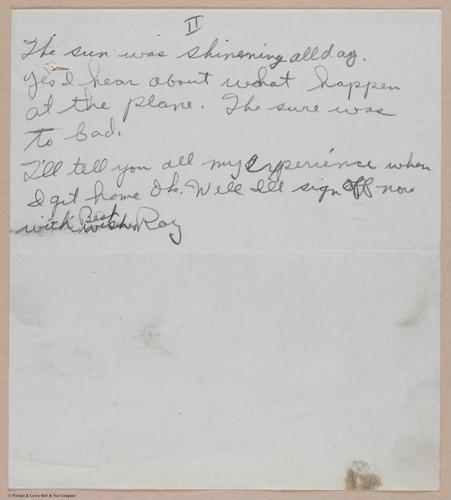 II
The sun was shinening all day.
Yes I hear about what happen
at the plane. The sure was
to bad.
I'll tell you all my experience when
I get home Ok. Well I'll sign off now
with Best wishes Roy